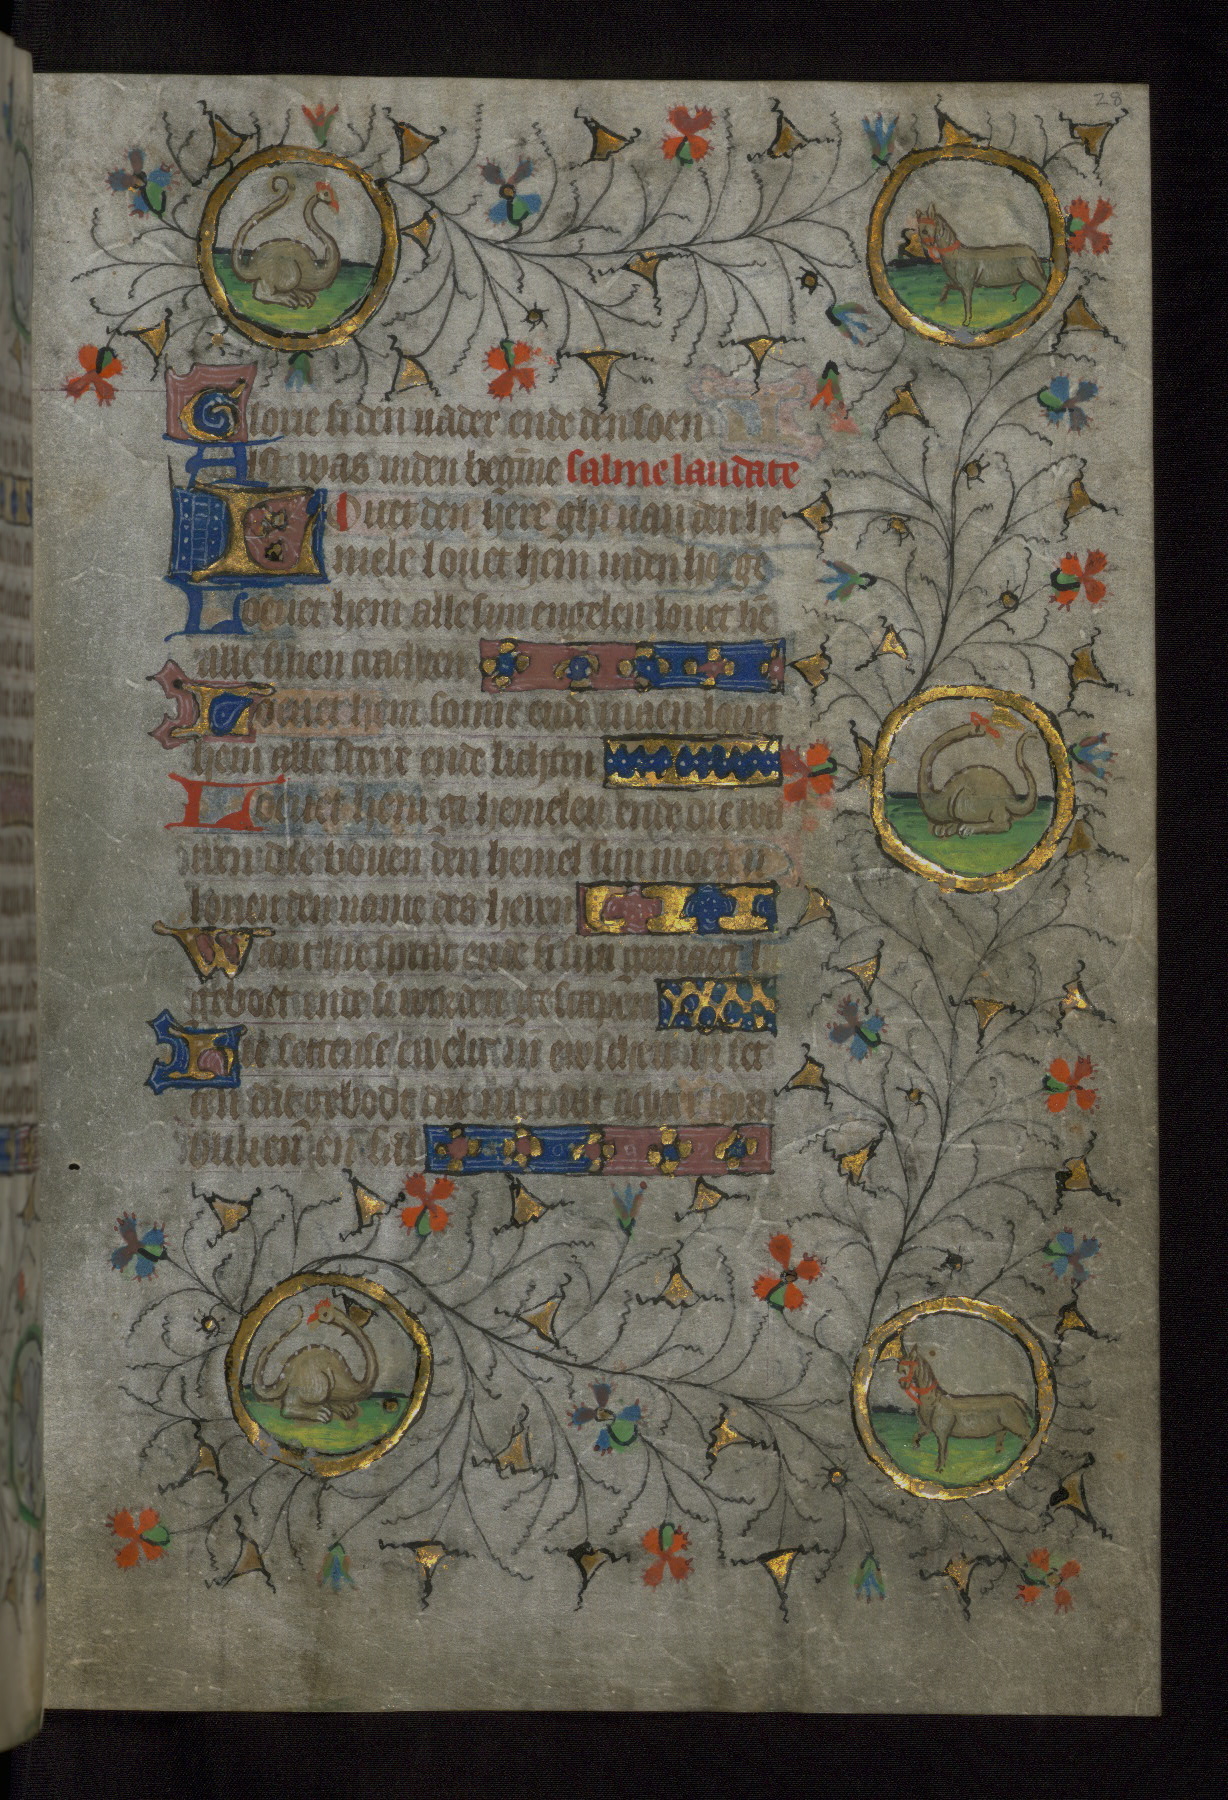 28
Glorie si den vader ende den soen
Alst was inden begīne salme laudate
Louet den here ghi van den he
mele louet hem inden hoege
Loeuet hem alle sijn engelen louet hē
alle sinen crachten
Loeuet hem sonne ende maen louet
hem alle sterre ende lichten
Loeuet hem gi hemelen ende die wa
teren die bouen den hemel sijn moeten
louen den name des heren
Want hie sprac ende si sijn gemaect
geboet ende si worden ghescapen
settense ewelic in ewicheit
ten dat gebodt dat niet